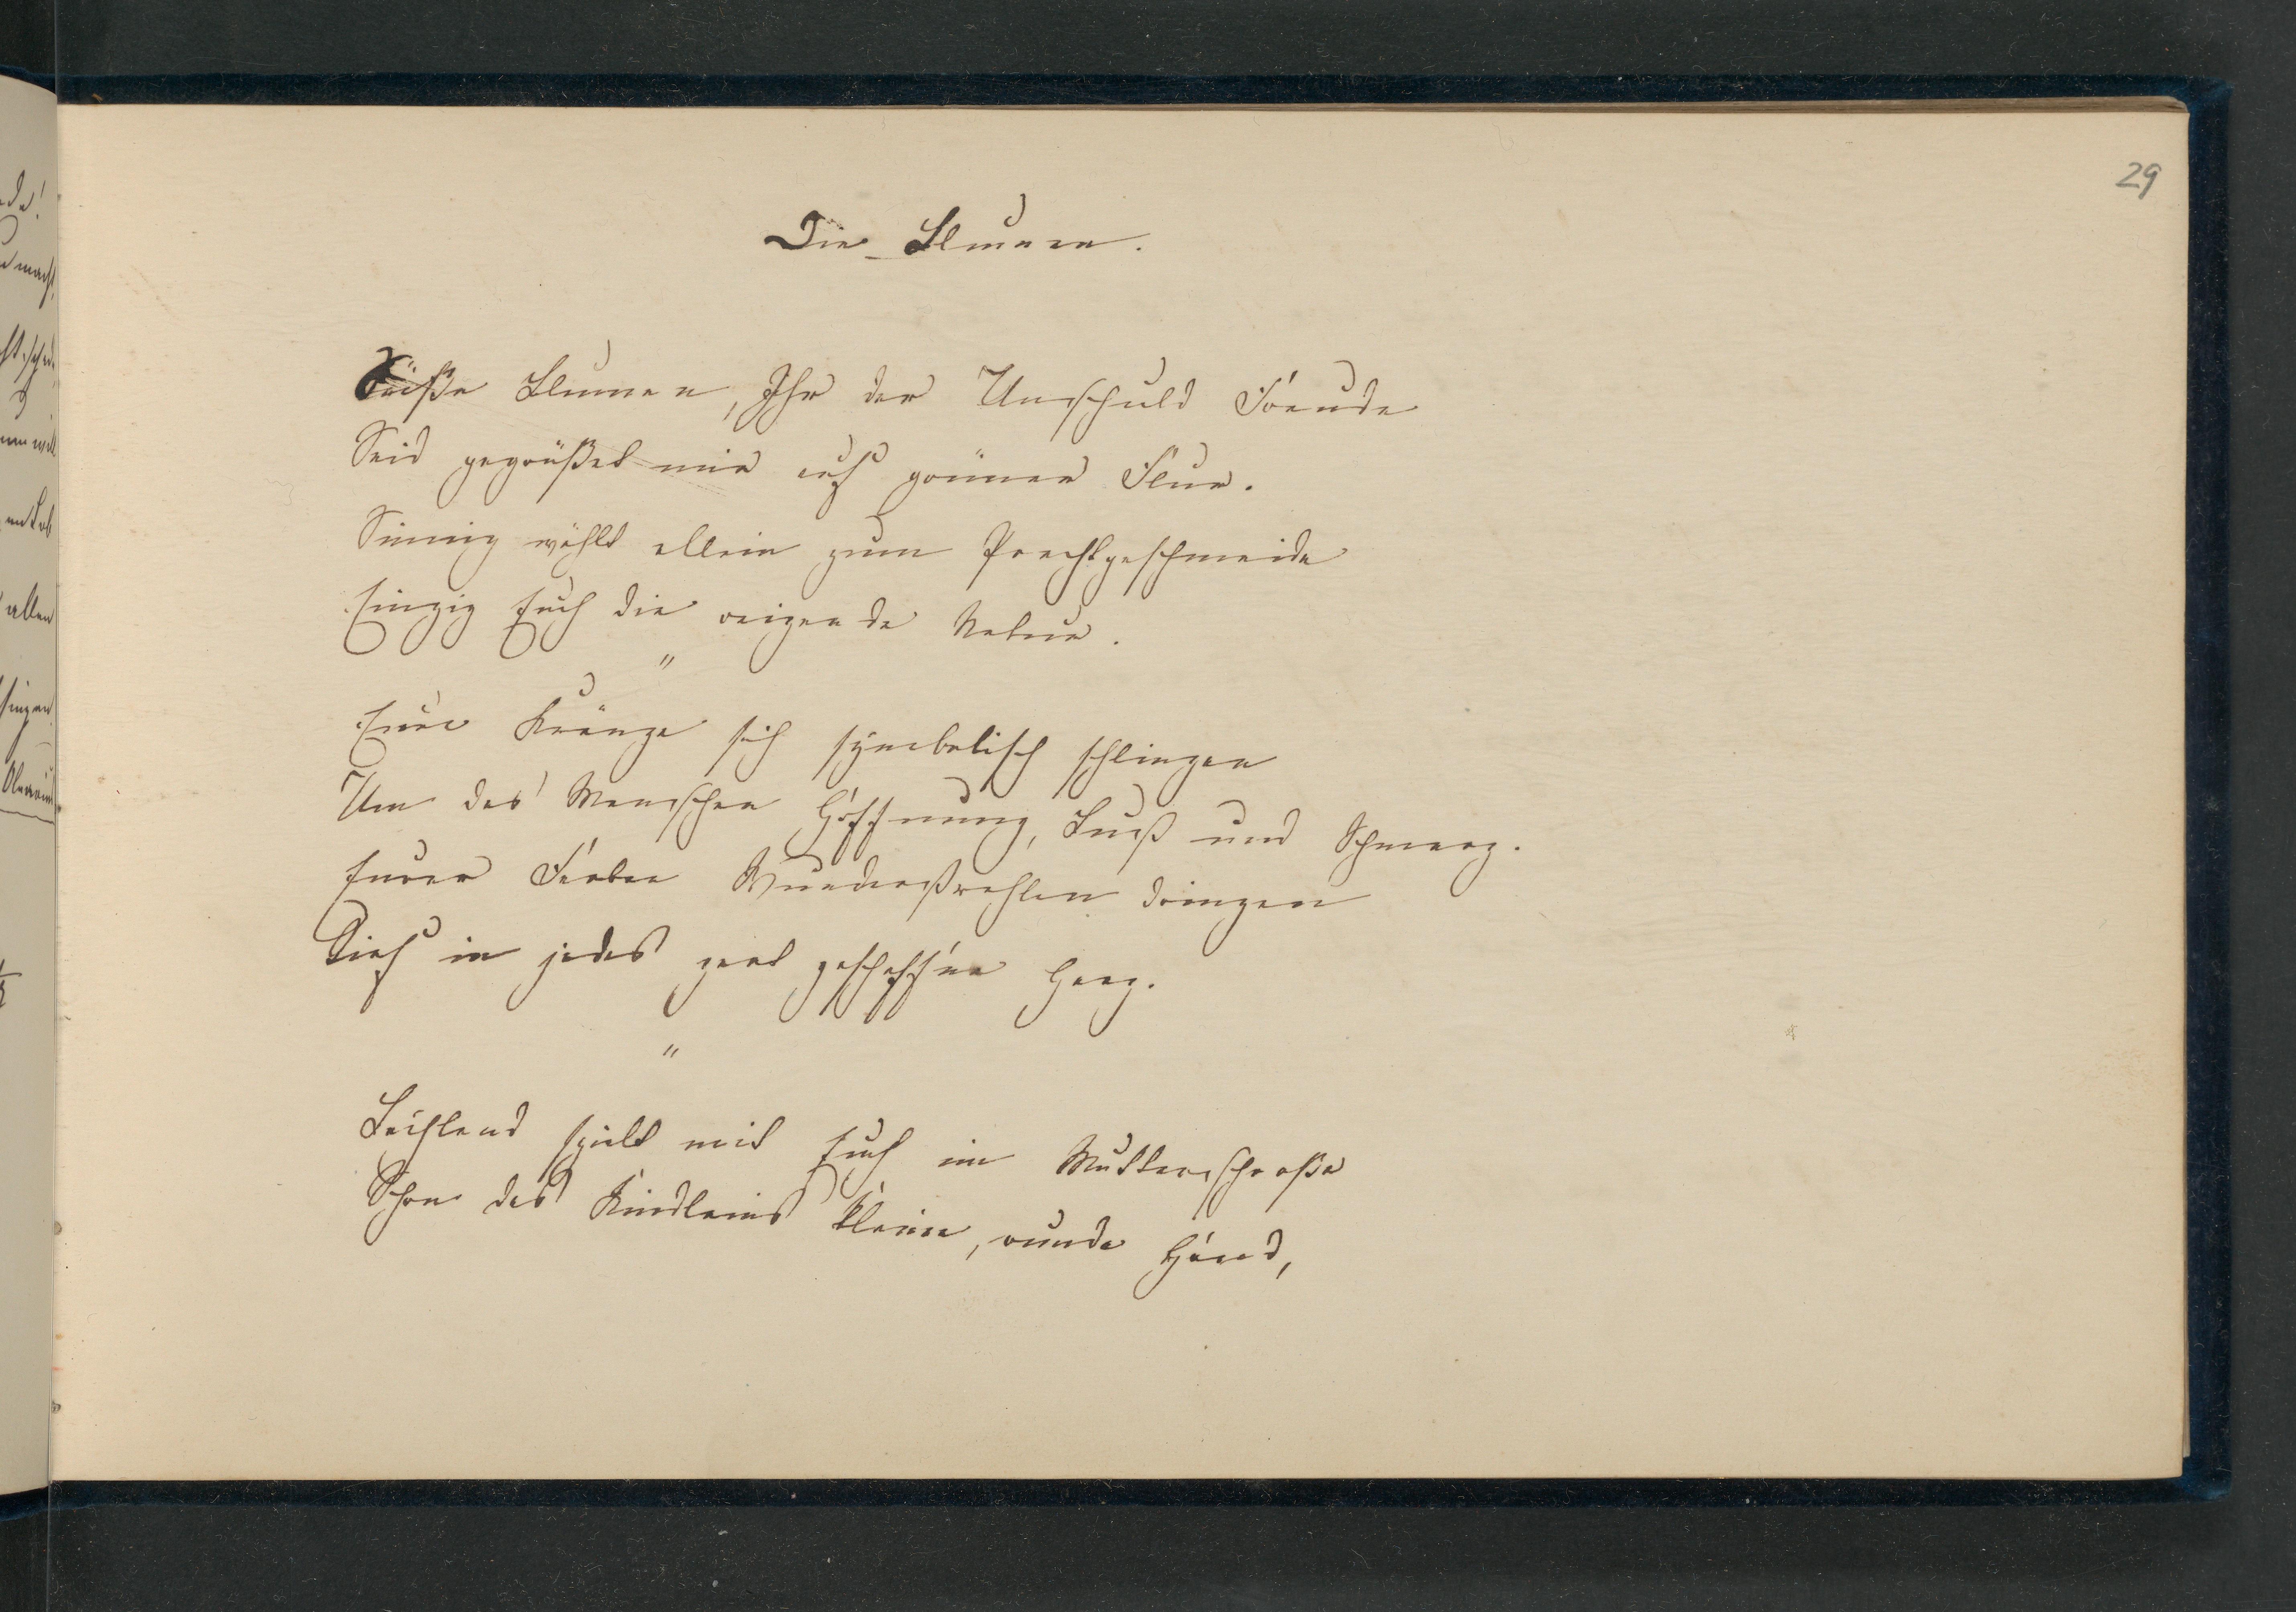 29
Die Blumen.
Süße Blumen, Ihr der Unschuld Freude
Seid gegrüßet mir auf grüner Flur.
Sinnig wählt allein zum Prachtgeschmeide
Einzig Euch die reizende Natur.
"
Eure Kränze sich symbolisch schlingen
Um des Menschen Hoffnung, Lust und Schmerz.
Eurer Farben Wunderstrahlen dringen
Tief in jedes zart geschaff'ne Herz.
"
Lächelnd spielt mit Euch im Mutterschoße
Schon des Kindleins kleine, runde Hand,